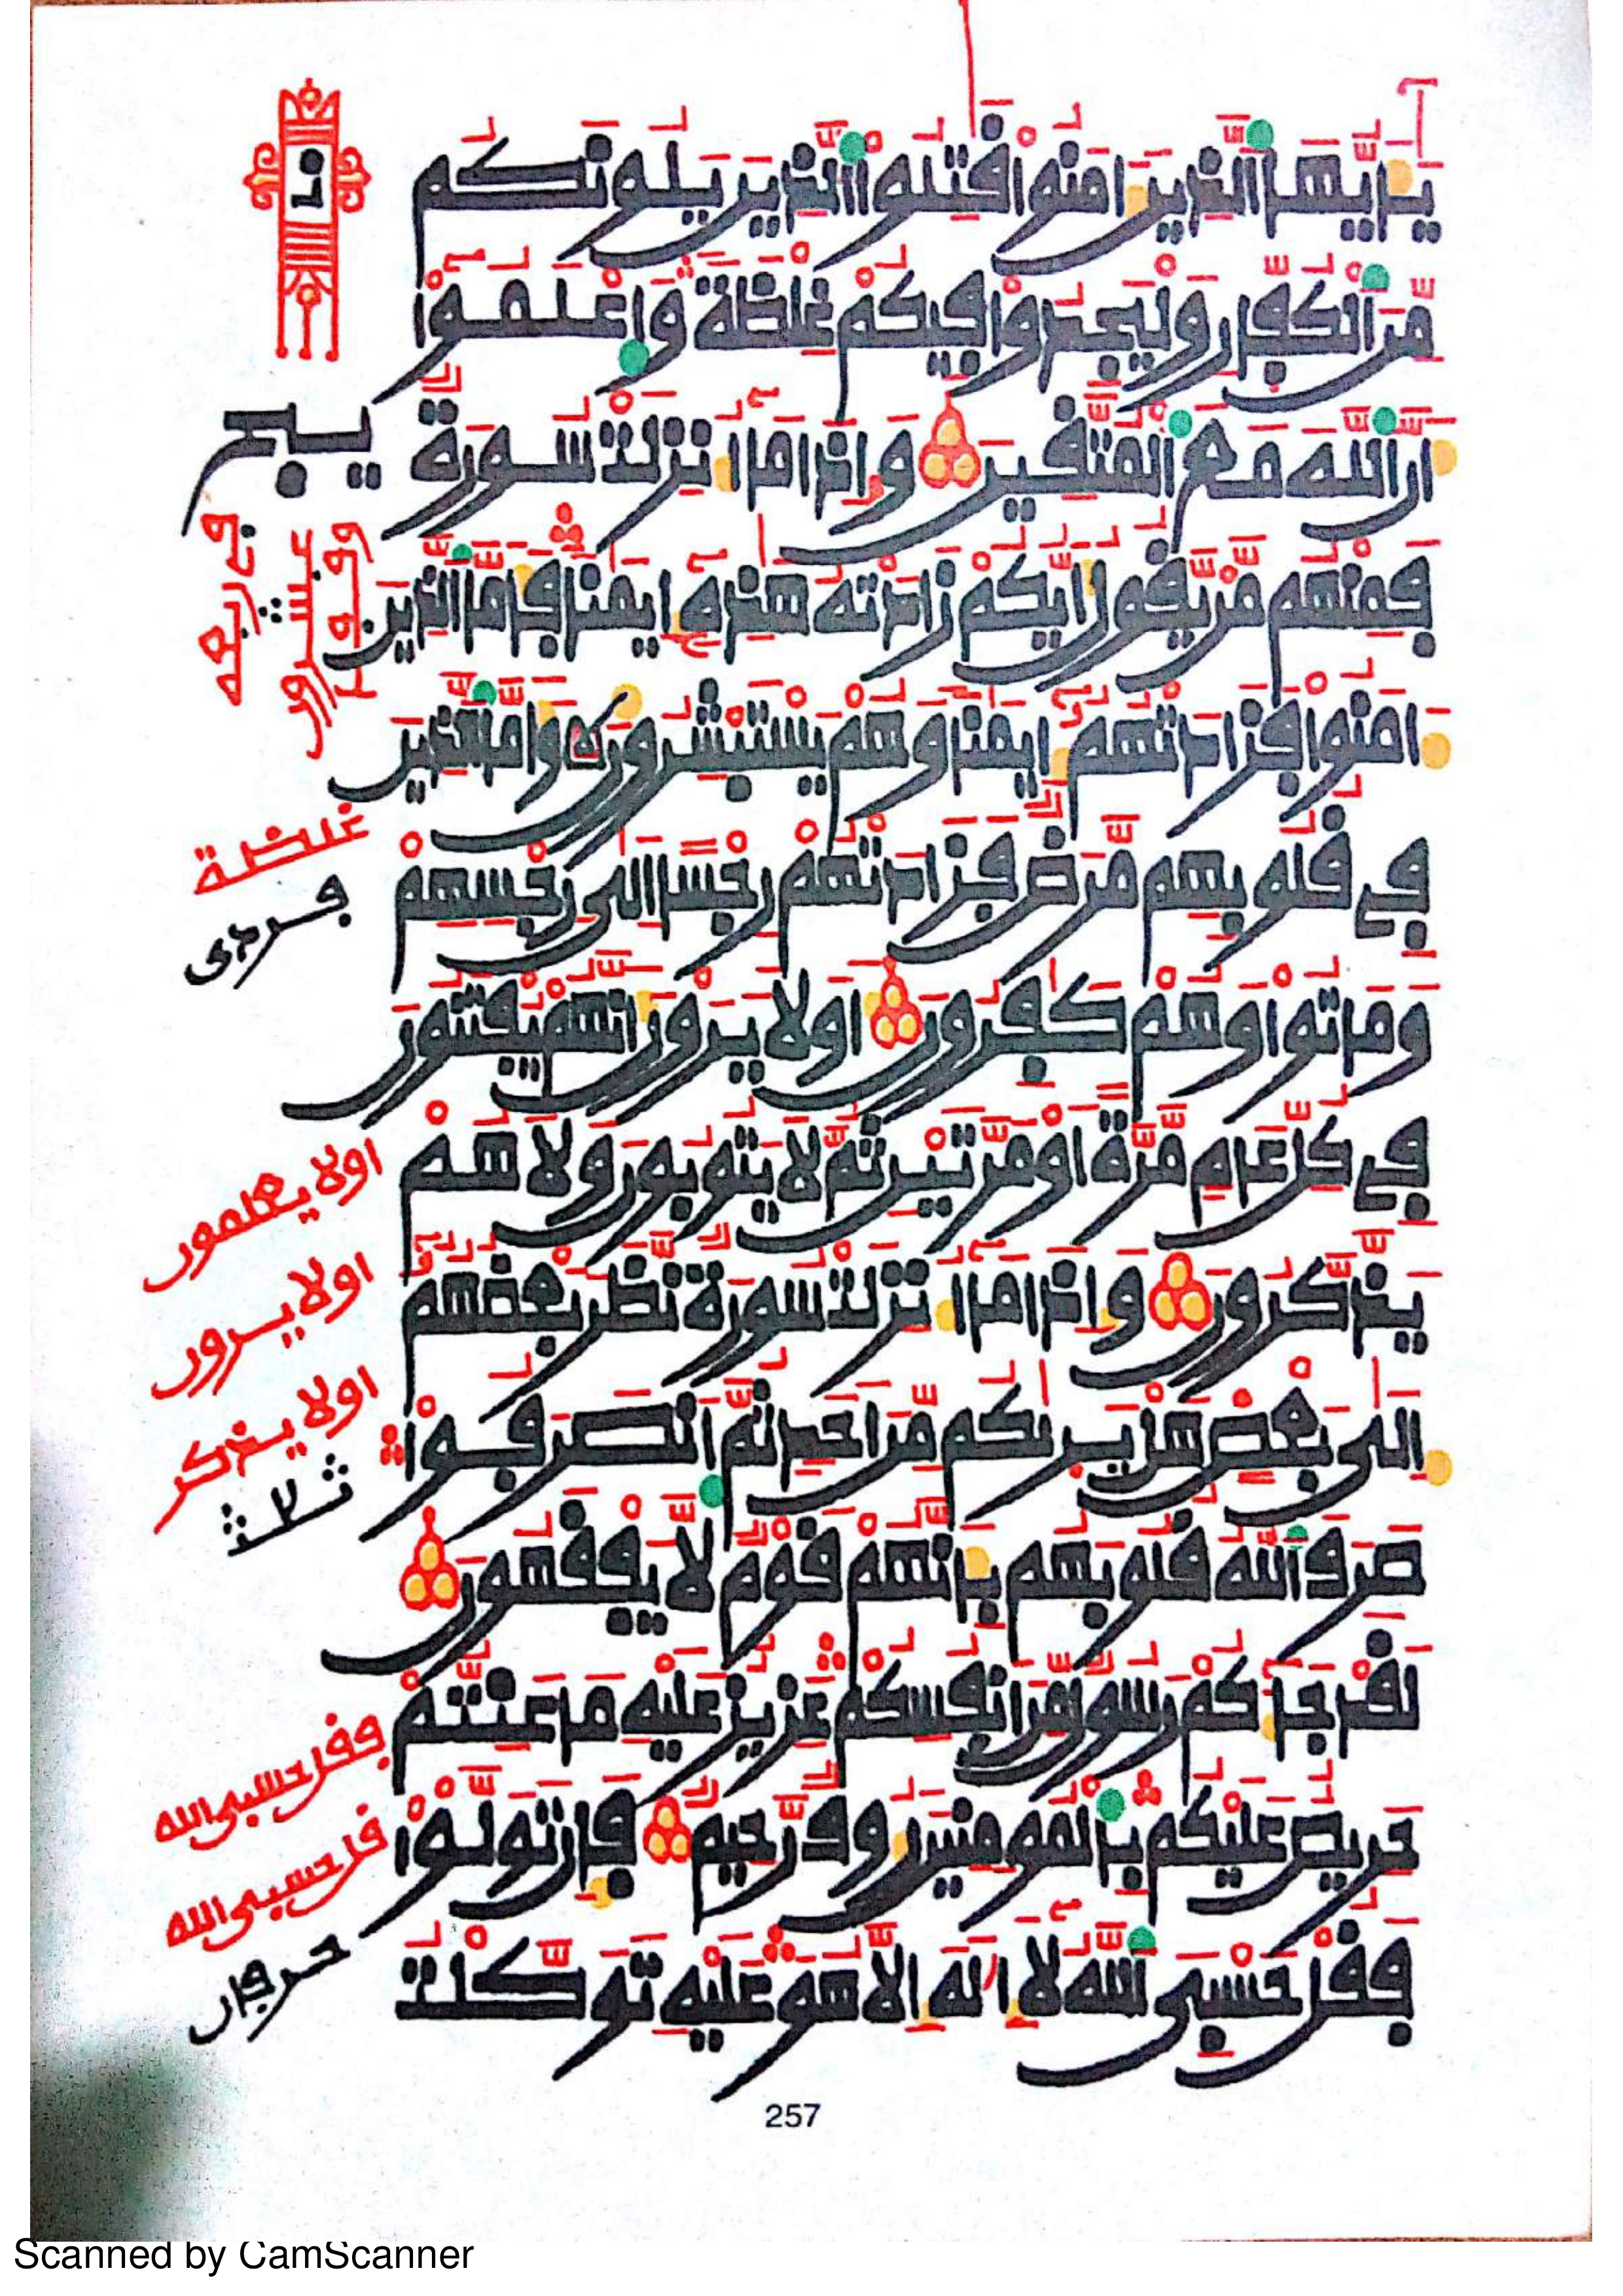 يَٰأَيُّهَا ٱلَّذِينَ ءَامَنُوا۟ قَٰتِلُوا۟ ٱلَّذِينَ يَلُونَكُم
مِّنَ ٱلْكُفَّارِ وَلْيَجِدُوا۟ فِيكُمْ غِلْظَةً وَٱعْلَمُوٓا۟
أَنَّ ٱللَّهَ مَعَ ٱلْمُتَّقِينَ وَإِذَا مَآ أُنزِلَتْ سُورَةٌ
فَمِنْهُم مَّن يَّقُولُ أَيُّكُمْ زَادَتْهُ هَٰذِهِۦٓ إِيمَٰنًا فَأَمَّا ٱلَّذِينَ
ءَامَنُوا۟ فَزَادَتْهُمْ إِيمَٰنًا وَهُمْ يَسْتَبْشِرُونَ وَأَمَّا ٱلَّذِينَ
فِي قُلُوبِهِم مَّرَضٌ فَزَادَتْهُمْ رِجْسًا إِلَىٰ رِجْسِهِمْ
وَمَاتُوا۟ وَهُمْ كَٰفِرُونَ أَوَلَا يَرَوْنَ أَنَّهُمْ يُفْتَنُونَ
فِي كُلِّ عَامٍ مَّرَّةً أَوْ مَرَّتَيْنِ ثُمَّ لَا يَتُوبُونَ وَلَا هُمْ
يَذَّكَّرُونَ وَإِذَا مَآ أُنزِلَتْ سُورَةٌ نَّظَرَ بَعْضُهُمُۥٓ
إِلَىٰ بَعْضٍ هَلْ يَرَىٰكُم مِّنْ أَحَدٍ ثُمَّ ٱنصَرَفُوا۟
صَرَفَ ٱللَّهُ قُلُوبَهُم بِأَنَّهُمْ قَوْمٌ لَّا يَفْقَهُونَ
لَقَدْ جَآءَكُمْ رَسُولٌ مِّنْ أَنفُسِكُمْ عَزِيزٌ عَلَيْهِ مَا عَنِتُّمْ
حَرِيصٌ عَلَيْكُم بِٱلْمُومِنِينَ رَءُوفٌ رَّحِيمٌ فَإِن تَوَلَّوْا۟
فَقُلْ حَسْبِيَ ٱللَّهُ لَآ إِلَٰهَ إِلَّا هُوَ عَلَيْهِ تَوَكَّلْتُ
غلضة
فردى
اولا يعلمون
اولا يرون
اولا يذكر
ثلاث
فقل حسبي الله
قل حسبي الله
257
Scanned by CamScanner